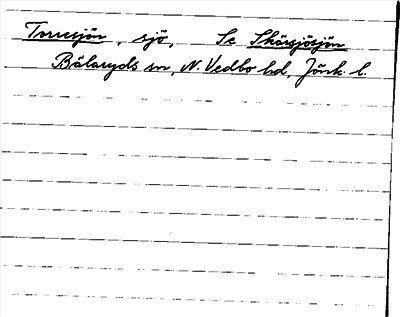 Torresjön, sjö, Se Skärsjösjön
Bälaryds sn, N. Vedbo hd, Jönk. l.